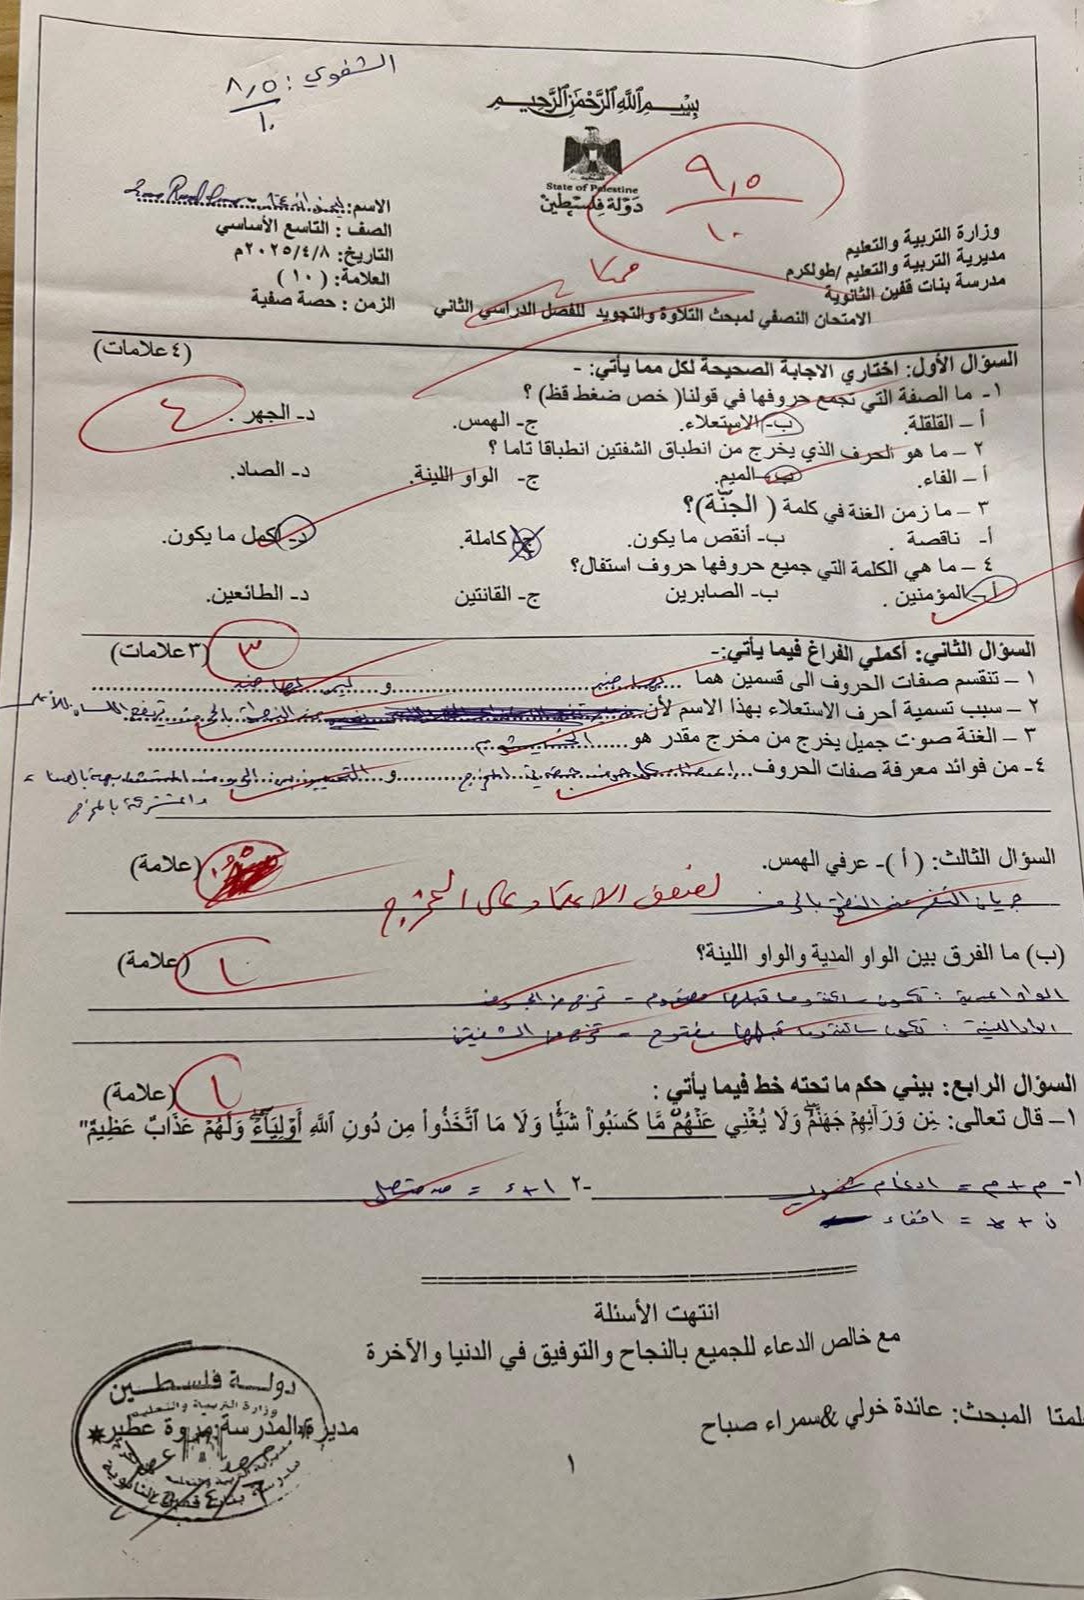 الشفوي: ٨,٥
١٠
بِسْمِ اللَّهِ الرَّحْمَنِ الرَّحِيمِ
State of Palestine
دولة فلسطين
٩,٥
١٠
ممتازة
وزارة التربية والتعليم
مديرية التربية والتعليم /طولكرم
مدرسة بنات قفين الثانوية
الاسم:
الصف : التاسع الأساسي
التاريخ: ٢٠٢٥/٤/٨م
العلامة: ( ١٠ )
الزمن : حصة صفية
الامتحان النصفي لمبحث التلاوة والتجويد للفصل الدراسي الثاني
السؤال الأول: اختاري الاجابة الصحيحة لكل مما يأتي: - (٤ علامات)
٤
١- ما الصفة التي تجمع حروفها في قولنا( خص ضغط قظ) ؟
أ – القلقلة. ب- الاستعلاء. ج- الهمس. د- الجهر .
٢ – ما هو الحرف الذي يخرج من انطباق الشفتين انطباقا تاما ؟
أ – الفاء. ب- الميم. ج- الواو اللينة. د- الصاد.
٣ – ما زمن الغنة في كلمة ( الجنّة)؟
أ- ناقصة . ب- أنقص ما يكون. ج- كاملة. د- أكمل ما يكون.
٤ – ما هي الكلمة التي جميع حروفها حروف استفال؟
أ- المؤمنين . ب- الصابرين ج- القانتين د- الطائعين.
السؤال الثاني: أكملي الفراغ فيما يأتي:- (٣ علامات)
٣
١ – تنقسم صفات الحروف الى قسمين هما لها ضد و ليس لها ضد
٢ – سبب تسمية أحرف الاستعلاء بهذا الاسم لأن عند النطق بالحرف يرتفع اللسان للأعلى
٣ – الغنة صوت جميل يخرج من مخرج مقدر هو الخيشوم
٤- من فوائد معرفة صفات الحروف إعطاء كل حرف حقه في المخرج و التمييز بين الحروف المتشابهة بالصفات
والمشتركة بالمخرج
السؤال الثالث: ( أ )- عرفي الهمس. (علامة)
جريان النفس عند النطق بالحرف لضعف الاعتماد على المخرج
(ب) ما الفرق بين الواو المدية والواو اللينة؟ (علامة)
١
الواو المدية : تكون ساكنة وما قبلها مضموم - تخرج من الجوف
الواو اللينة : تكون ساكنة وما قبلها مفتوح - تخرج من الشفتين
السؤال الرابع: بيني حكم ما تحته خط فيما يأتي : (علامة)
١
١– قال تعالى: مِّن وَرَآئِهِمْ جَهَنَّمُ وَلَا يُغْنِي عَنْهُم مَّا كَسَبُوا۟ شَيْـًٔا وَلَا مَا ٱتَّخَذُوا۟ مِن دُونِ ٱللَّهِ أَوْلِيَآءَ وَلَهُمْ عَذَابٌ عَظِيمٌ"
١- م + م = ادغام شفوي ٢- ا + ء = مد متصل
انتهت الأسئلة
مع خالص الدعاء للجميع بالنجاح والتوفيق في الدنيا والآخرة
علمتا المبحث: عائدة خولي &سمراء صباح
مديرة المدرسة: مروة عطير
دولة فلسطين
وزارة التربية والتعليم
١